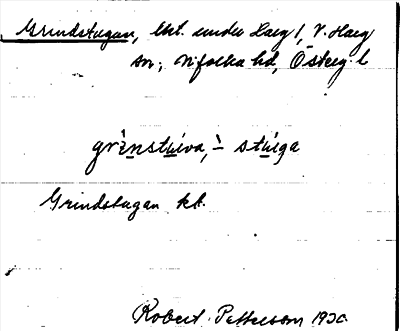 Grindstugan, lht. under Haeg 1, V. Haeg
sn; Vifolka hd, Österg. l
grìnstuiva, ì- stuiga
Grindstugan kt.
Robert Petterson 1930